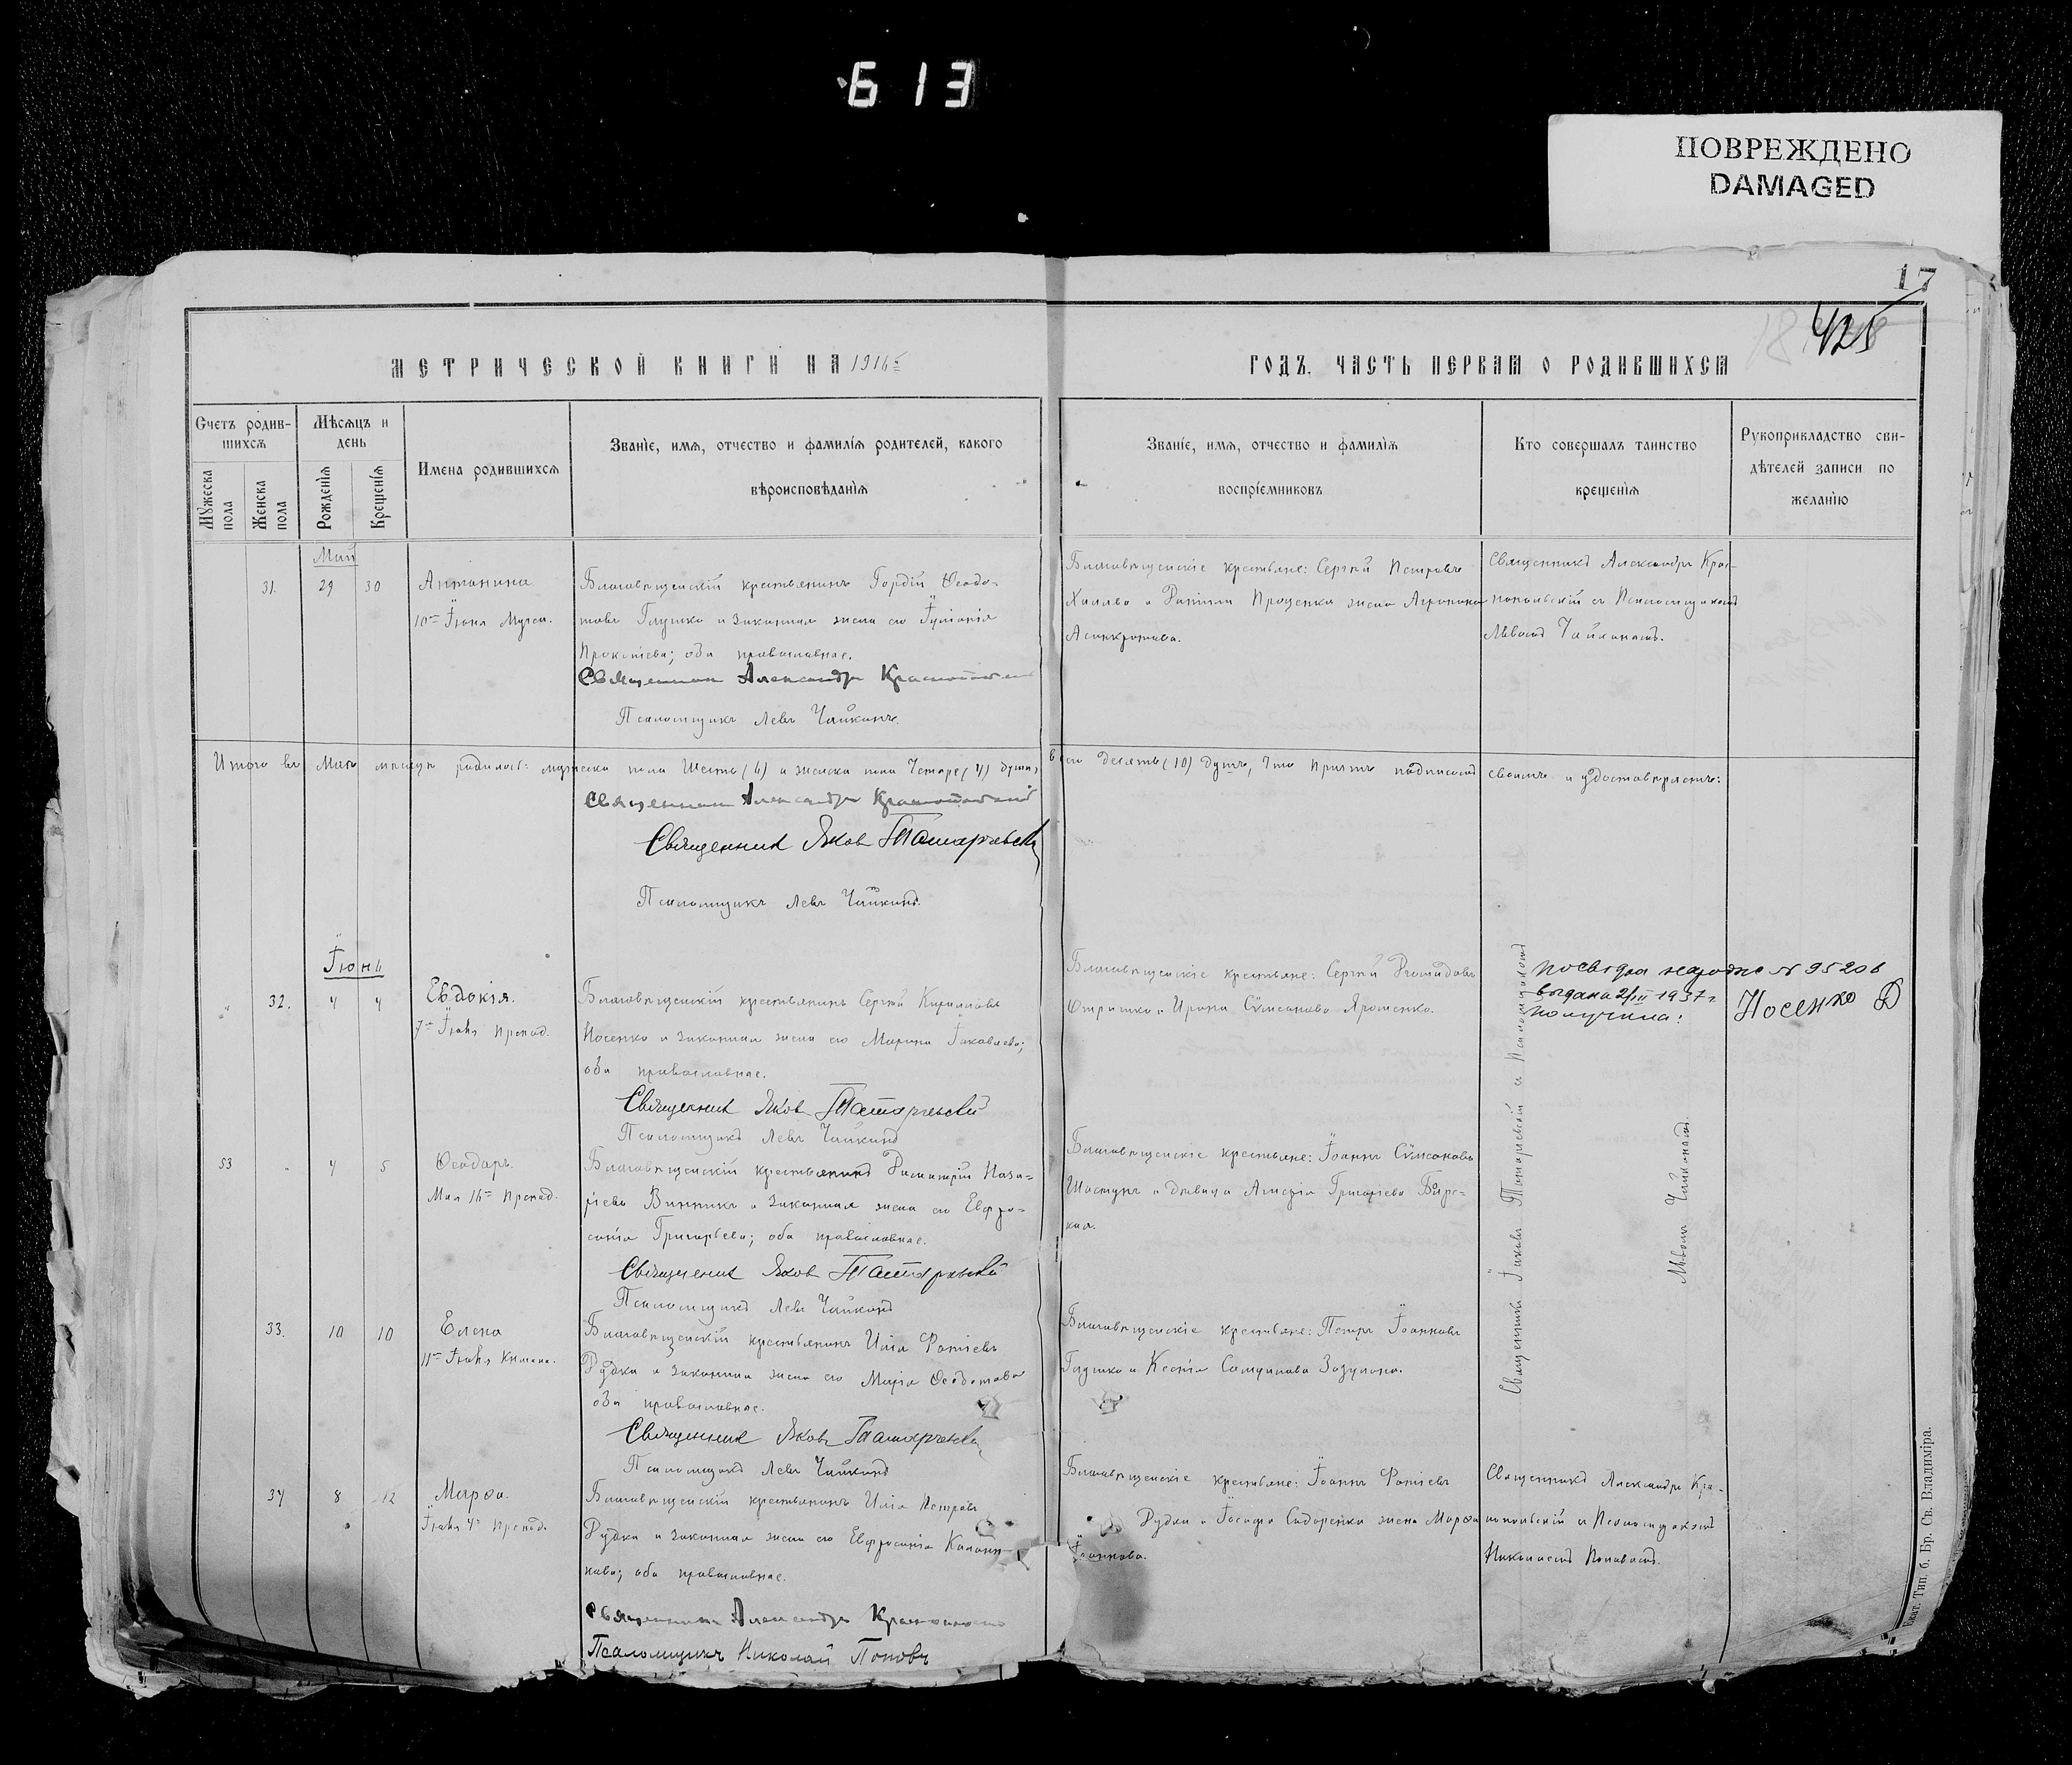 613
ПОВРЕЖДЕНО
DAMAGED
17
425
МЕТРИЧЕСКОЙ КНИГИ НА 1916
ГОДЪ. ЧАСТЬ ПЕРВАЯ О РОДИВШИХСЯ
Счетъ родив-
шихся
Мужеска пола
Женска пола
Мѣсяцъ и
день
Рожденія
Крещенія
Имена родившихся
Званіе, имя, отчество и фамилія родителей, какого
вѣроисповѣданія
Званіе, имя, отчество и фамилія
воспріемниковъ
Кто совершалъ таинство
крещенія
Рукоприкладство сви-
дѣтелей записи по
желанію
Май
31. 29 30
Антонина
10го Іюня Мучен.
Благовѣщенскій крестьянинъ Гордій Ѳеодо-
товъ Глушко и законная жена его Іуліанія
Прокопіева; оба православные.
Священникъ Александръ
Псаломщикъ Левъ Чайкинъ.
Благовѣщенскіе крестьяне: Сергѣй Петровъ
и Проценка жена
Священникъ Александръ Крас-
нопольскій съ Псаломщикомъ
Львомъ Чайкинымъ.
Итого въ Маѣ мѣсяцѣ родилось: мужеска пола Шесть (6) и женска пола Четыре (4) души,
всего десять (10) душъ, что причтъ подписомъ своимъ и удостовѣряетъ:
Священникъ Александръ Краснопольскій
Священникъ Яковъ
Псаломщикъ Левъ Чайкинъ.
Іюнь
" 32. 4 4
Евдокія.
7го Іюня препод.
Благовѣщенскій крестьянинъ Сергѣй Кирилловъ
Носенко и законная жена его Марина Іаковлева;
оба православные.
Священникъ Яковъ
Псаломщикъ Левъ Чайкинъ
Благовѣщенскіе крестьяне: Сергѣй
и Ирина Сѵмеонова Ярошенко.
выдана 2/III 1937 г
получила:
Носенко
Священникъ Іаковъ и Псаломщикомъ
Львомъ Чайкинымъ.
53 " 4 5
Ѳеодоръ.
Мая 16го препод.
Благовѣщенскій крестьянинъ Димитрій Наза-
ріевъ Винникъ и законная жена его Евфро-
синія Григорьева; оба православные.
Священникъ Яковъ
Псаломщикъ Левъ Чайкинъ
Благовѣщенскіе крестьяне: Іоаннъ Сѵмеоновъ
и дѣвица Григоріева
33. 10 10
Елена
11го Іюня
Благовѣщенскій крестьянинъ Илія Фотіевъ
Рудка и законная жена его Марія Ѳеодотова
оба православные.
Священникъ Яковъ
Псаломщикъ Левъ Чайкинъ
Благовѣщенскіе крестьяне: Петръ Іоанновъ
и Ксенія Самуилова Зозулина.
34 8 12
Марѳа.
Іюня 4го препод.
Благовѣщенскій крестьянинъ Илія Петровъ
Рудка и законная жена его Евфросинія Калин-
кова; оба православные.
Священникъ Александръ
Псаломщикъ Николай Поповъ
Благовѣщенскіе крестьяне: Іоаннъ Фотіевъ
Рудка и Іосифа Сидоренка жена Марѳа
Іоаннова.
Священникъ Александръ Кра-
снопольскій съ Псаломщикомъ
Николаемъ Поповымъ.
Екат. Тип. б. Бр. Св. Владиміра.